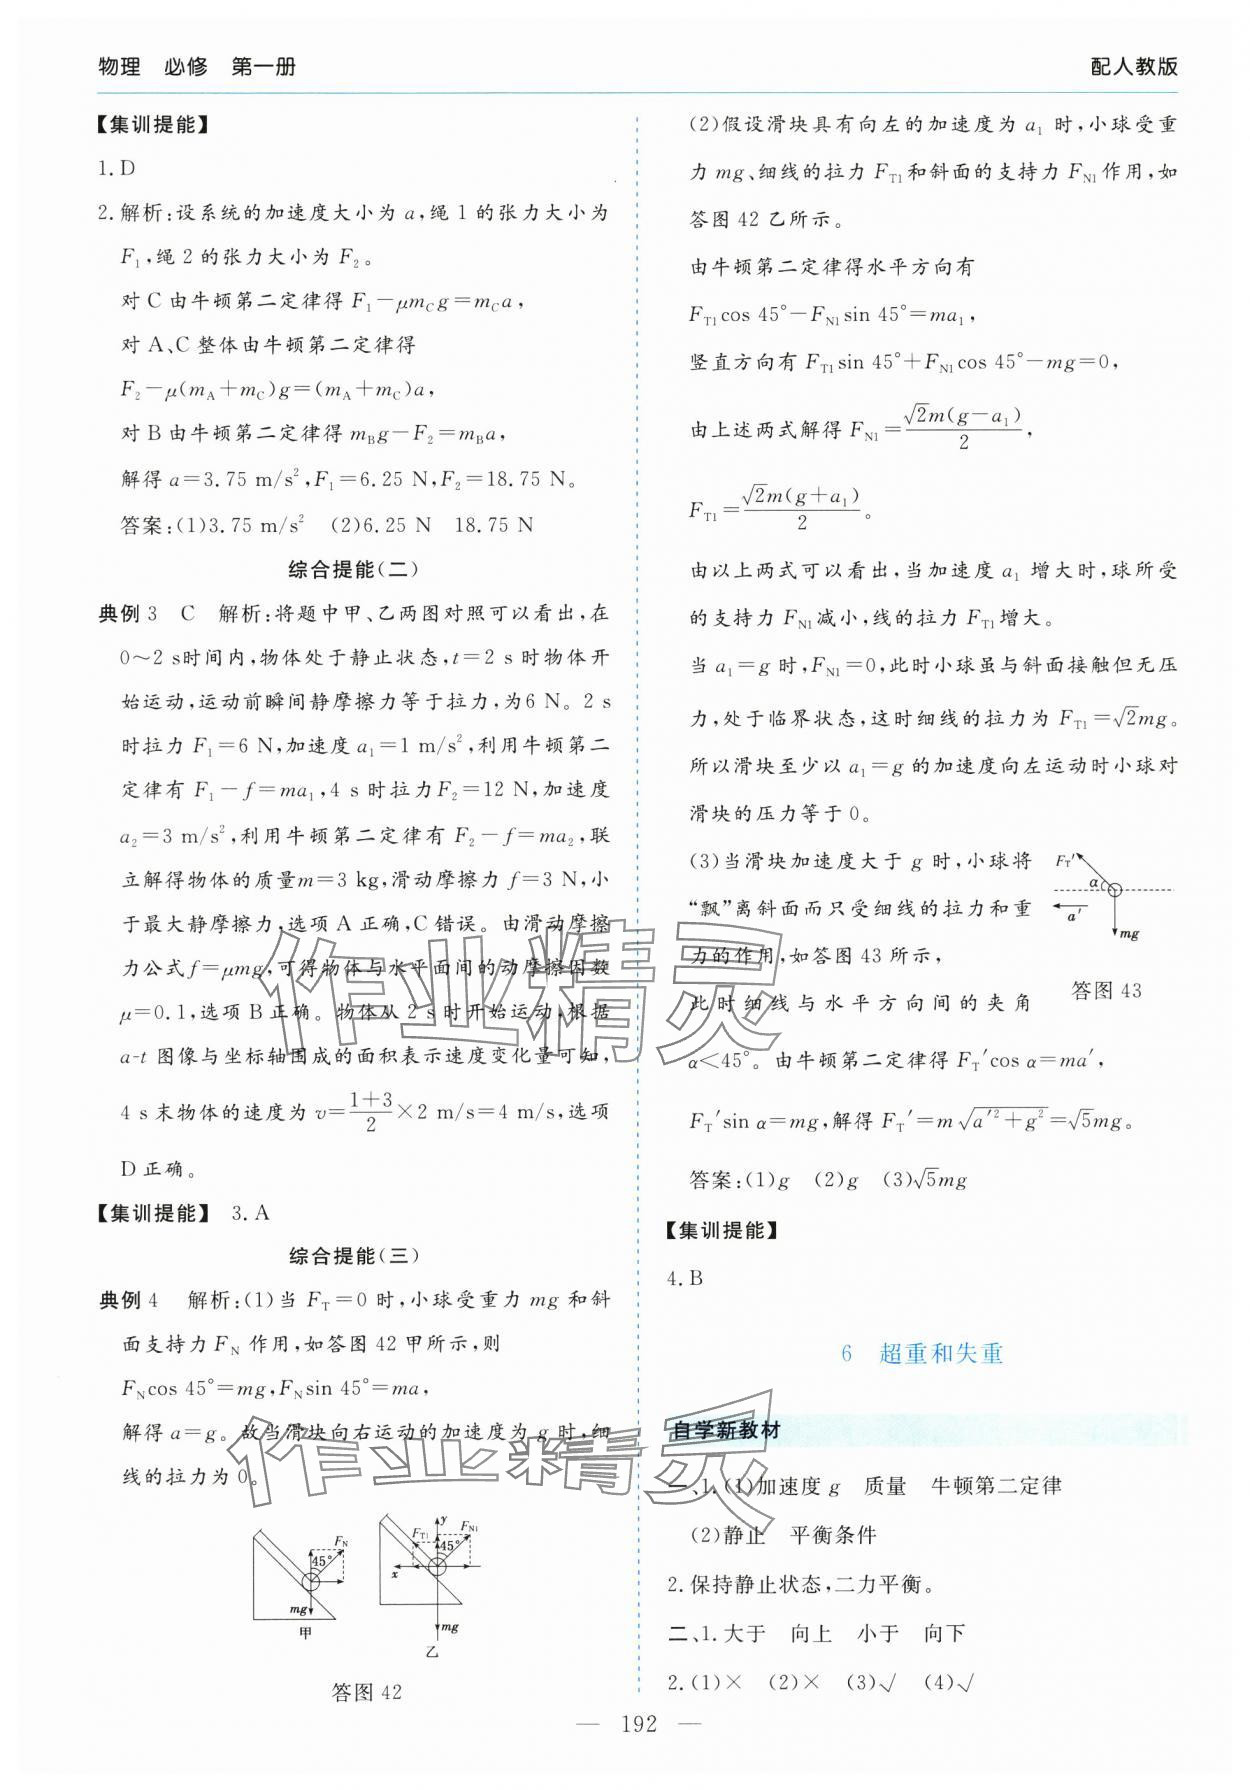 物理 必修 第一册
配人教版
【集训提能】
1.D
2.解析:设系统的加速度大小为 a,绳 1 的张力大小为
F₁,绳 2 的张力大小为 F₂。
对 C 由牛顿第二定律得 F₁－μm_C g＝m_C a,
对 A、C 整体由牛顿第二定律得
F₂－μ(m_A＋m_C)g＝(m_A＋m_C)a,
对 B 由牛顿第二定律得 m_B g－F₂＝m_B a,
解得 a＝3.75 m/s²,F₁＝6.25 N,F₂＝18.75 N。
答案:(1)3.75 m/s² (2)6.25 N 18.75 N
综合提能(二)
典例 3 C 解析:将题中甲、乙两图对照可以看出,在
0～2 s时间内,物体处于静止状态,t＝2 s 时物体开
始运动,运动前瞬间静摩擦力等于拉力,为6 N。2 s
时拉力 F₁＝6 N,加速度 a₁＝1 m/s²,利用牛顿第二
定律有 F₁－f＝ma₁,4 s 时拉力F₂＝12 N,加速度
a₂＝3 m/s²,利用牛顿第二定律有 F₂－f＝ma₂,联
立解得物体的质量m＝3 kg,滑动摩擦力 f＝3 N,小
于最大静摩擦力,选项 A 正确,C 错误。由滑动摩擦
力公式f＝μmg,可得物体与水平面间的动摩擦因数
μ＝0.1,选项 B 正确。物体从 2 s时开始运动,根据
a-t 图像与坐标轴围成的面积表示速度变化量可知,
4 s 末物体的速度为 v＝(1＋3)/2×2 m/s＝4 m/s,选项
D 正确。
【集训提能】 3.A
综合提能(三)
典例 4 解析:(1)当 F_T＝0 时,小球受重力 mg 和斜
面支持力 F_N 作用,如答图 42 甲所示,则
F_N cos 45°＝mg,F_N sin 45°＝ma,
解得 a＝g。故当滑块向右运动的加速度为 g 时,细
线的拉力为 0。
F_N
45°
mg
甲
y
F_T1
F_N1
45°
x
mg
乙
答图 42
(2)假设滑块具有向左的加速度为 a₁ 时,小球受重
力 mg、细线的拉力 F_T1 和斜面的支持力 F_N1 作用,如
答图 42 乙所示。
由牛顿第二定律得水平方向有
F_T1 cos 45°－F_N1 sin 45°＝ma₁,
竖直方向有 F_T1 sin 45°＋F_N1 cos 45°－mg＝0,
由上述两式解得 F_N1＝√2m(g－a₁)/2,
F_T1＝√2m(g＋a₁)/2。
由以上两式可以看出,当加速度 a₁ 增大时,球所受
的支持力 F_N1 减小,线的拉力 F_T1 增大。
当 a₁＝g 时,F_N1＝0,此时小球虽与斜面接触但无压
力,处于临界状态,这时细线的拉力为 F_T1＝√2mg。
所以滑块至少以 a₁＝g 的加速度向左运动时小球对
滑块的压力等于 0。
(3)当滑块加速度大于 g 时,小球将
“飘”离斜面而只受细线的拉力和重
力的作用,如答图 43 所示,
此时细线与水平方向间的夹角
F_T′
α
a′
mg
答图 43
α＜45°。由牛顿第二定律得 F_T′cos α＝ma′,
F_T′sin α＝mg,解得 F_T′＝m√(a′²＋g²)＝√5mg。
答案:(1)g (2)g (3)√5mg
【集训提能】
4.B
6 超重和失重
自学新教材
一、1.(1)加速度 g 质量 牛顿第二定律
(2)静止 平衡条件
2.保持静止状态,二力平衡。
二、1.大于 向上 小于 向下
2.(1)× (2)× (3)√ (4)√
— 192 —
作业精灵
作业精灵